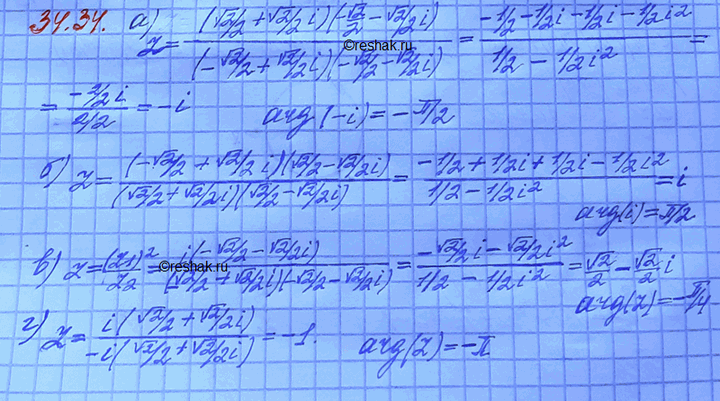 34.34. а) z = ((√2/2 + √2/2 i)(√2/2 - √2/2 i)) / ((-√2/2 + √2/2 i)(-√2/2 - √2/2 i)) = (-1/2 - 1/2 i - 1/2 i - 1/2 i²) / (1/2 - 1/2 i²) =
©reshak.ru
= (-2/2 i) / (2/2) = -i arg(-i) = -π/2
б) z = ((-√2/2 + √2/2 i)(√2/2 - √2/2 i)) / ((√2/2 + √2/2 i)(√2/2 - √2/2 i)) = (-1/2 + 1/2 i + 1/2 i - 1/2 i²) / (1/2 - 1/2 i²) = i
arg(i) = π/2
в) z = (z₁)²/z₂ = (i(-√2/2 - √2/2 i)) / ((-√2/2 + √2/2 i)(-√2/2 - √2/2 i)) = (-√2/2 i - √2/2 i²) / (1/2 - 1/2 i²) = √2/2 - √2/2 i
©reshak.ru
arg(z) = -π/4
г) z = (i(√2/2 + √2/2 i)) / (-i(√2/2 + √2/2 i)) = -1. arg(z) = -π